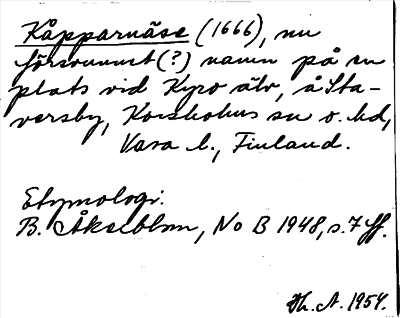 Kåpparnäse (1666), nu
försvunnet (?) namn på en
plats vid Kyro älv, å Sta-
versby, Korsholms sn o. hd,
Vasa l., Finland.
Etymologi.
B. Åkerblom, No B 1948, s. 7 ff.
Th. A. 1954.